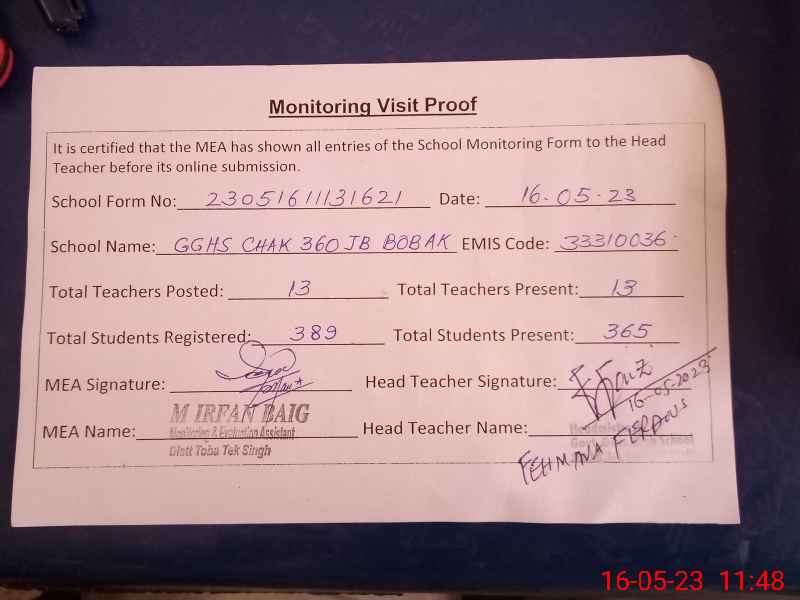 Monitoring Visit Proof
It is certified that the MEA has shown all entries of the School Monitoring Form to the Head
Teacher before its online submission.
School Form No: 23051611131621 Date: 16-05-23
School Name: GGHS CHAK 360 JB BOBAK EMIS Code: 33310036
Total Teachers Posted: 13 Total Teachers Present: 13
Total Students Registered: 389 Total Students Present: 365
MEA Signature: Head Teacher Signature:
16-05-2023
M IRFAN BAIG
MEA Name: Monitoring & Evaluation Assistant Head Teacher Name:
Distt Toba Tek Singh
FEHMANA FIERDOUS
16-05-23 11:48